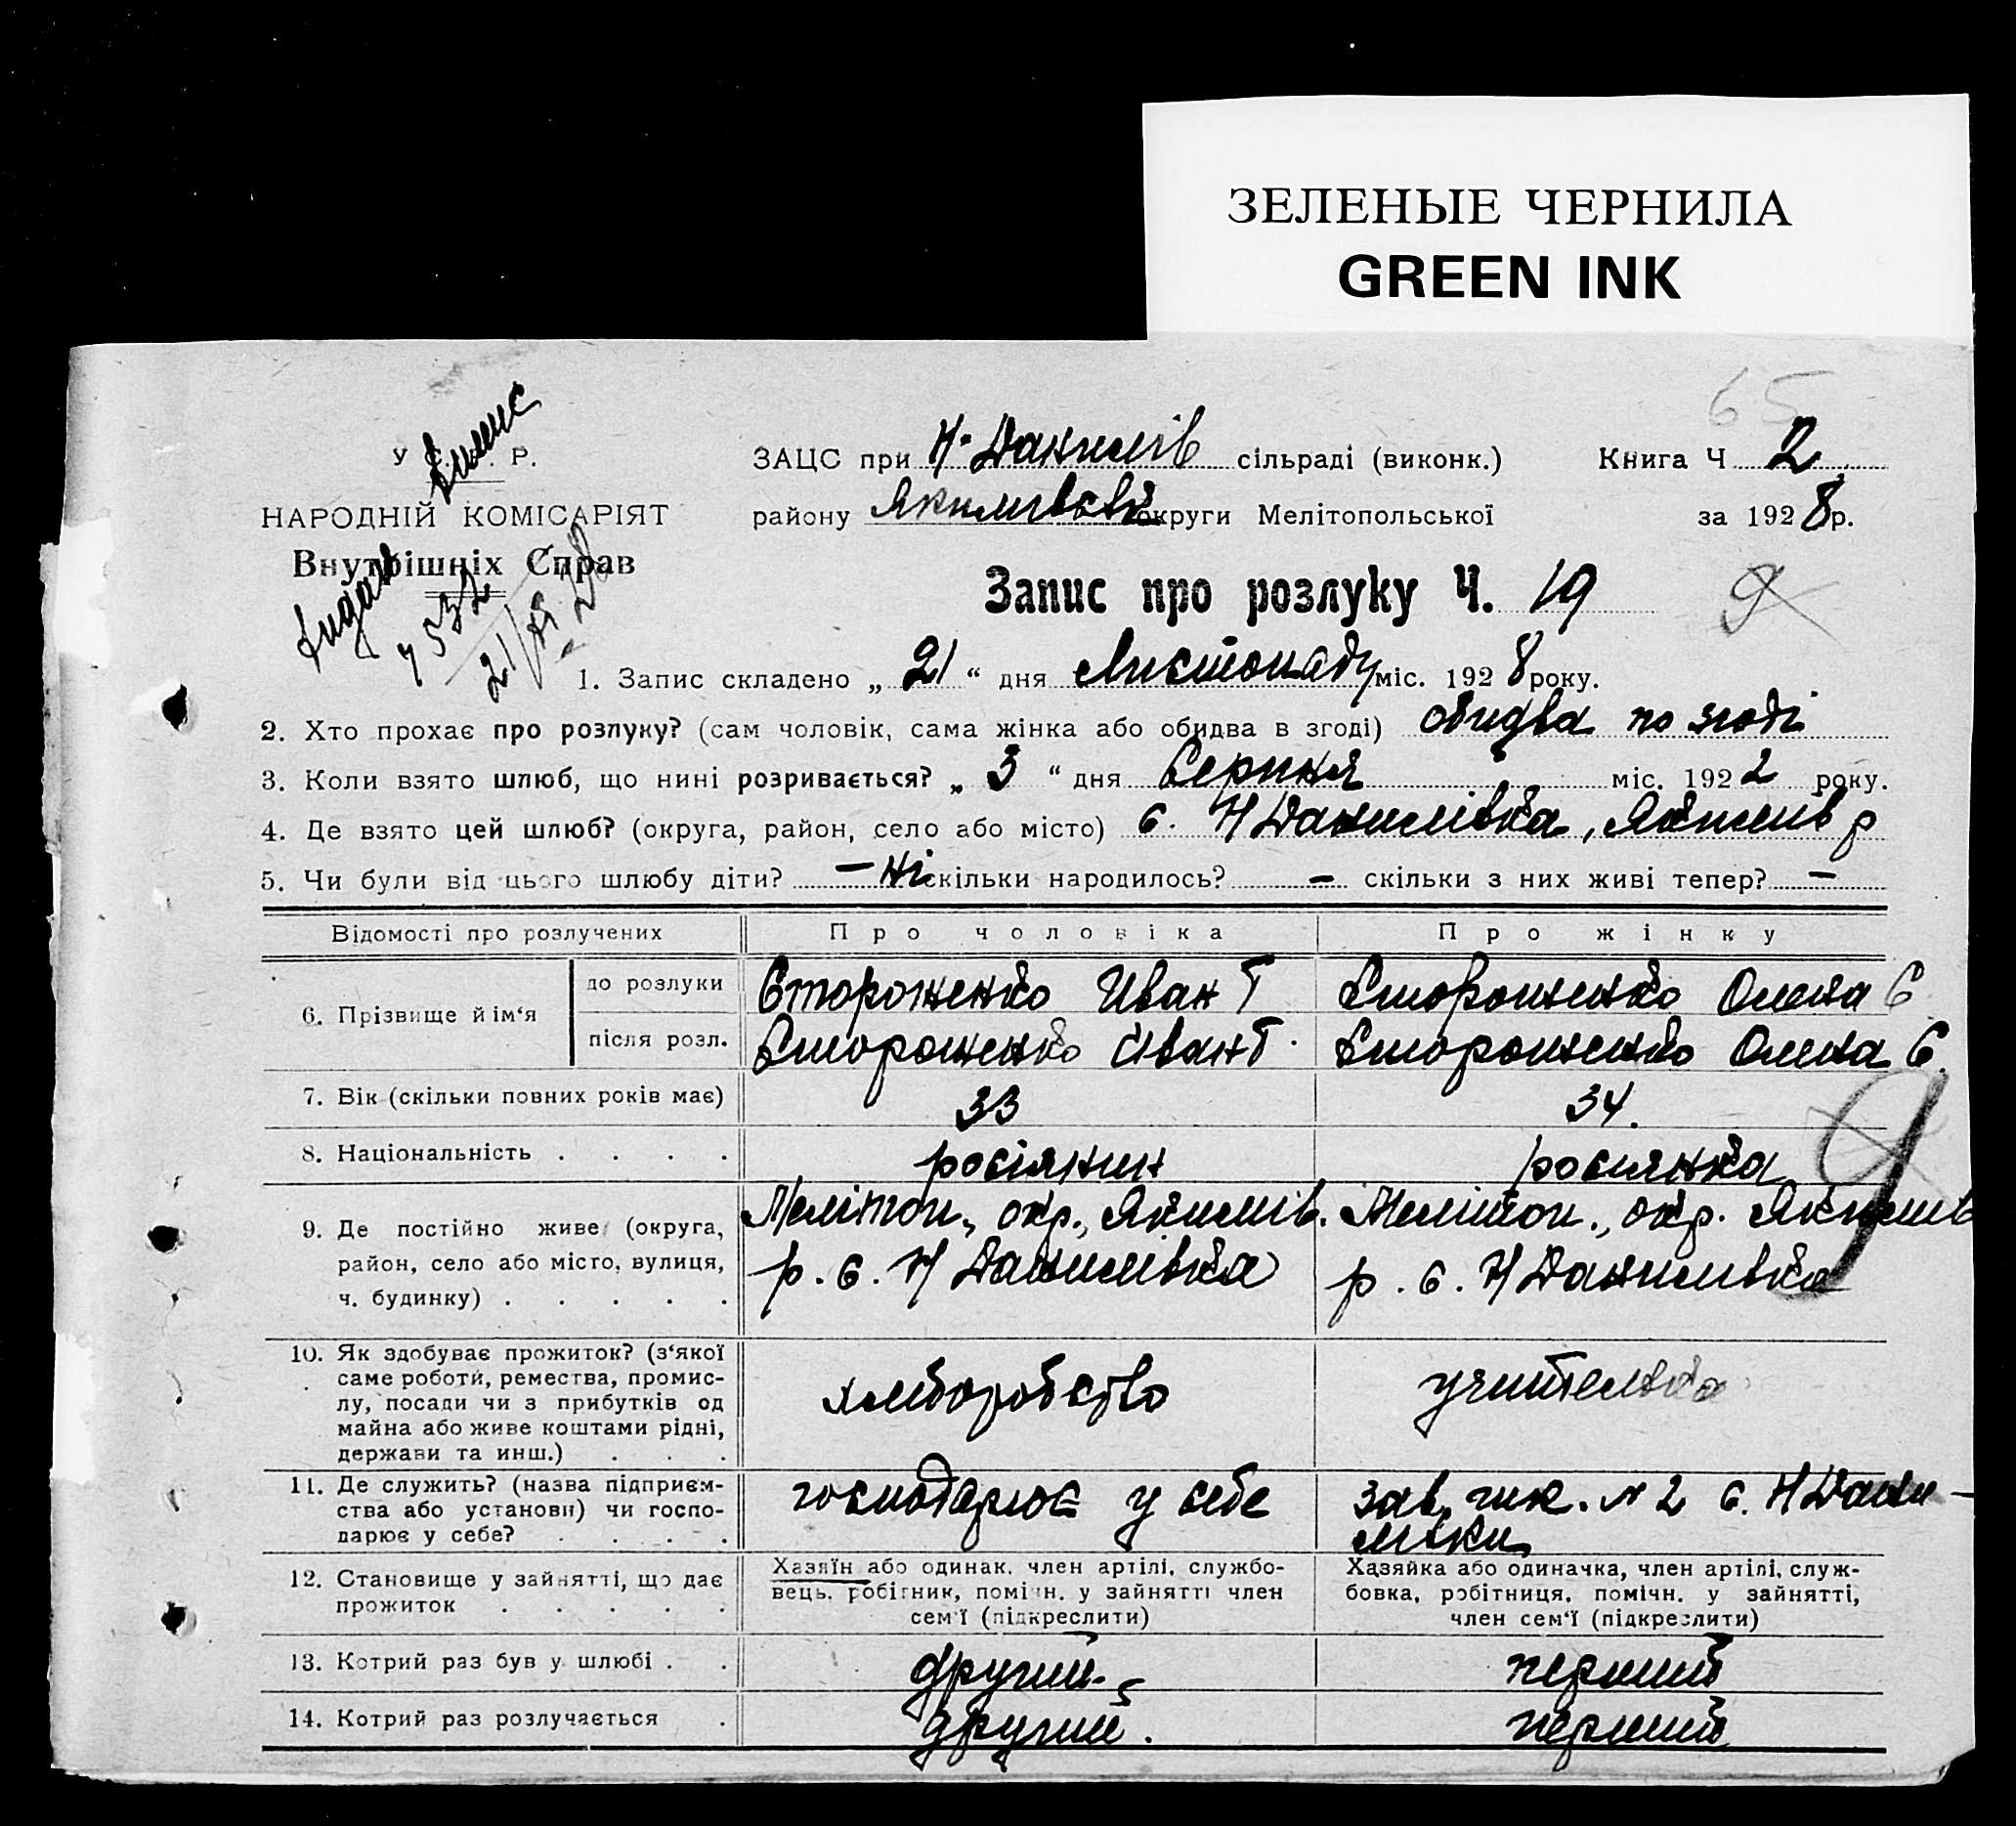 ЗЕЛЕНЫЕ ЧЕРНИЛА
GREEN INK
65
У С. Р. Р.
НАРОДНІЙ КОМІСАРІЯТ
Внутрішніх Справ
Випис
видан
7532
21/XI 28
ЗАЦС при Н-Данилів сільраді (виконк.) Книга Ч 2
району Якимівськ округи Мелітопольської за 1928 р.
Запис про розлуку Ч. 19
9
1. Запис складено „ 21 “ дня Листопаду міс. 1928 року.
2. Хто прохає про розлуку? (сам чоловік, сама жінка або обидва в згоді) обидва по згоді
3. Коли взято шлюб, що нині розривається? „ 3 “ дня Серпня міс. 1922 року.
4. Де взято цей шлюб? (округа, район, село або місто) с. Н Данилівка, Якимів р
5. Чи були від цього шлюбу діти? – ні скільки народилось? – скільки з них живі тепер? –
Відомості про розлучених Про чоловіка Про жінку
6. Прізвище й ім‘я до розлуки Стороженко Иван Т Стороженко Олена С
після розл. Стороженко Иван Т. Стороженко Олена С.
7. Вік (скільки повних років має) 33 34.
8. Національність . . . . росіянин росиянка
9. Де постійно живе (округа, Мелітоп., окр., Якимів. Мелитоп., окр. Якимив
район, село або місто, вулиця, р. с. Н Данилівка р. с. Н Даниливка
ч. будинку) . . . . .
10. Як здобуває прожиток? (з‘якої
саме роботи, ремества, промис-
лу, посади чи з прибутків од хлиборобство учителька
майна або живе коштами рідні,
держави та инш.) . . .
11. Де служить? (назва підприєм- господарює у себе зав. шк. № 2 с. Н Дани-
ства або установи) чи госпо- ливки
дарює у себе? . . . .
12. Становище у зайнятті, що дає Хазяїн або одинак. член артілі, службо- Хазяйка або одиначка, член артілі, служ-
прожиток . . . . . вець, робітник, помічн. у зайнятті член бовка, робітниця, помічн. у зайнятті,
сем‘ї (підкреслити) член сем‘ї (підкреслити)
13. Котрий раз був у шлюбі . . другий. перший
14. Котрий раз розлучається . другий. перший